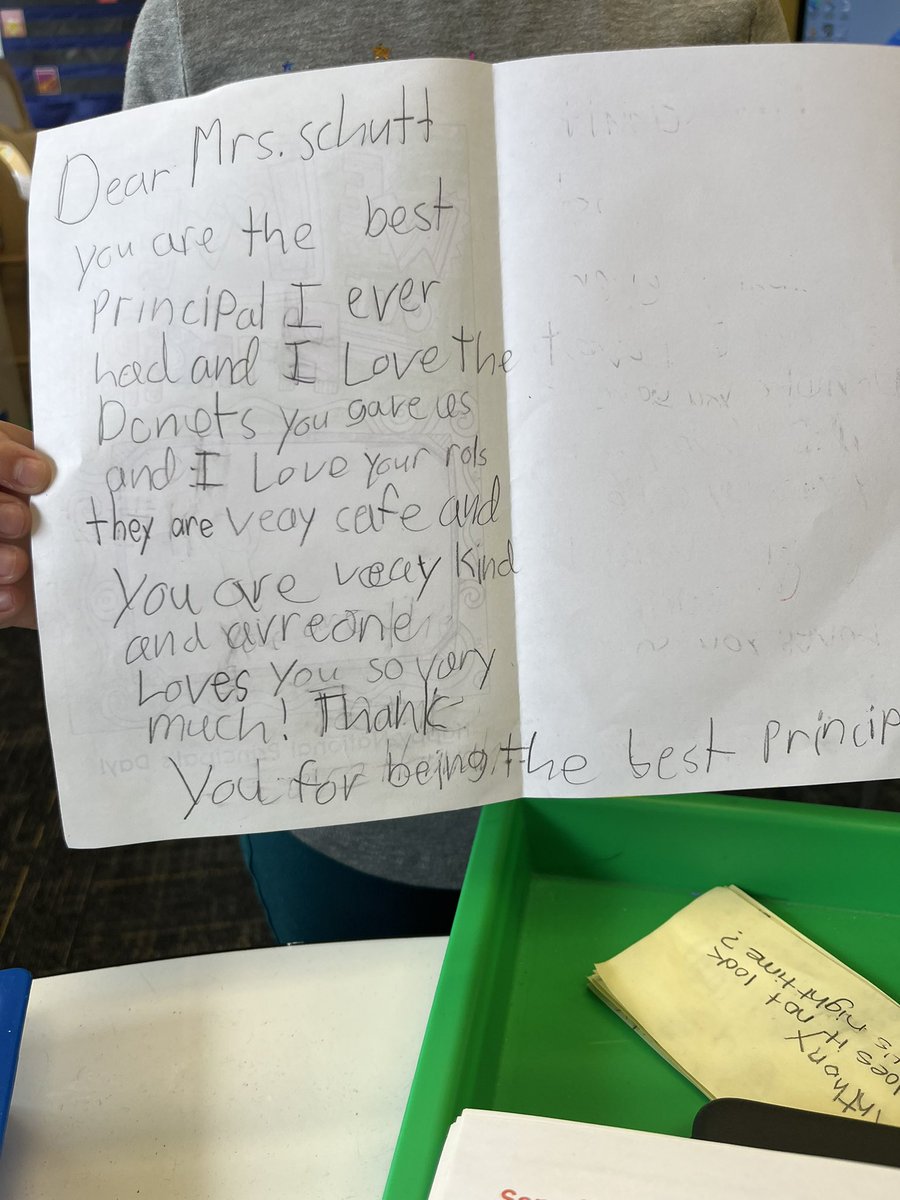 Dear Mrs. schutt
you are the best
principal I ever
had and I Love the
Donots you gave us
and I Love your rols
they are veay safe and
You are veay kind
and avreone
Loves you so vary
much! Thank
You for being the best princip
Happy National Principals Day!
not look
does it
nighttime?